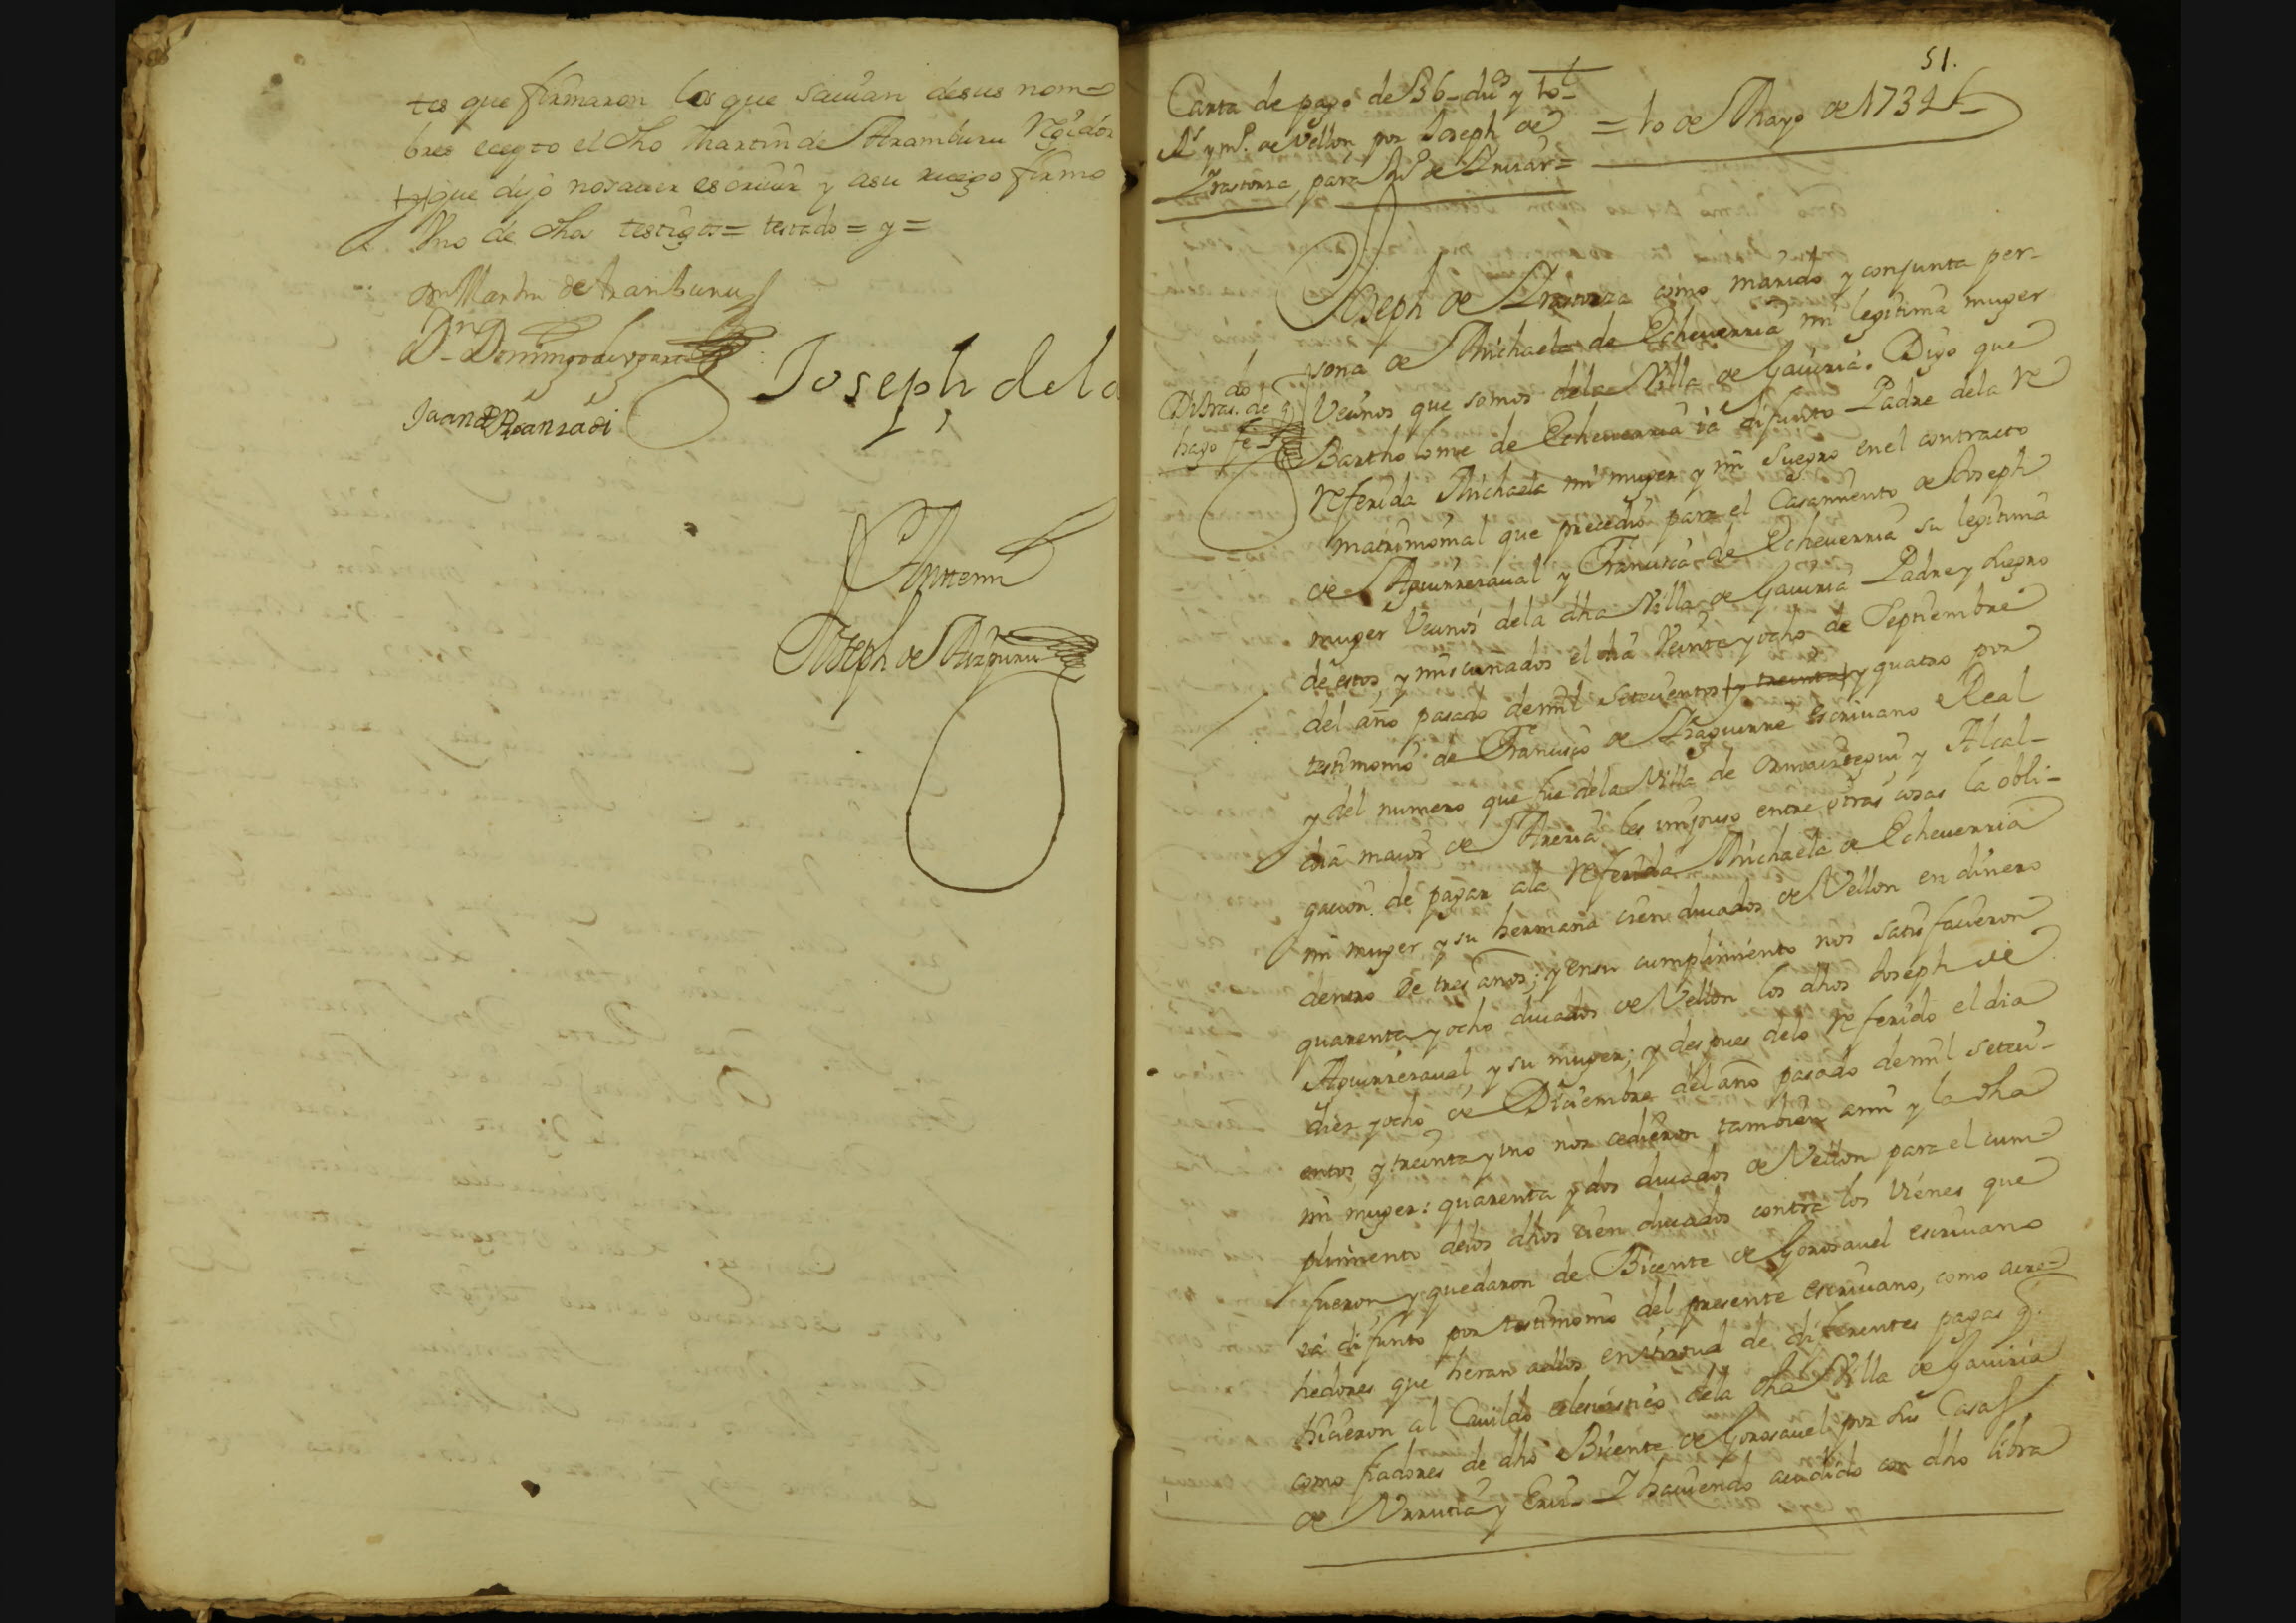 tes que firmaron los que savian de sus nom-
bres ecepto el dho Martin de Aramburu Regidor
que dijo no saver escrivir y a su ruego firmo
Uno de dhos testigos = testado = y =
Dn Martin de Aramburu
Dn Domingo de
Juan de Aranzadi
Joseph de la
Antemi
Joseph de Aizpuru
51.
Carta de pago de 36 ducs y 10
Rs y ms. de Vellon por Joseph de
Irastorza, para
= 10 de Mayo de 1734
Joseph de Irastorza como marido y conjunta per-
sona de Michaela de Echeverria mi legitima muger
Vecinos que somos dela Villa de Gaviria. Digo que
Bartholome de Echeverria ia difunto Padre dela Re
referida Michaela mi muger y mi suegro en el contracto
matrimonial que precedio para el Casamiento de Joseph
de Aguirrezaval y Francisca de Echeverria su legitima
muger Vecinos dela dha Villa de Gaviria Padre y suegro
de estos, y mis cunados el dia Veinte y ocho de Septiembre
del año pasado de mil setecientos y treinta y quatro por
testimonio de Francisco de Yraguirre escrivano Real
y del numero que fue dela Villa de Ormaiztegui y Alcal-
dia maior de Areria les impuso entre otras cosas la obli-
gacion de pagar ala referida Michaela de Echeverria
mi muger y su hermana cien ducados de Vellon en dinero
dentro de tres años; y en su cumplimiento nos satisfacieron
quarenta y ocho ducados de Vellon los dhos Joseph de
Aguirrezaval y su muger; y despues delo referido el dia
diez y ocho de Diciembre del año pasado de mil seteci-
entos y treinta y uno nos cedieron tambien ami y la dha
mi muger: quarenta y dos ducados de Vellon para el cum-
plimiento delos dhos cien ducados contra los vienes que
fueron y quedaron de Bicente de Gorosavel escrivano
ia difunto por testimonio del presente escrivano, como acre-
hedores que heran a ellos en virtud de diferentes pagas q.
hicieron al Cavildo eclesiastico dela dha Villa de Gaviria
como fiadores de dho Bicente de Gorosavel por sus Casas
de Urrutia y Y haviendo acudido con dho libra
do
Librai. de q
hago fe